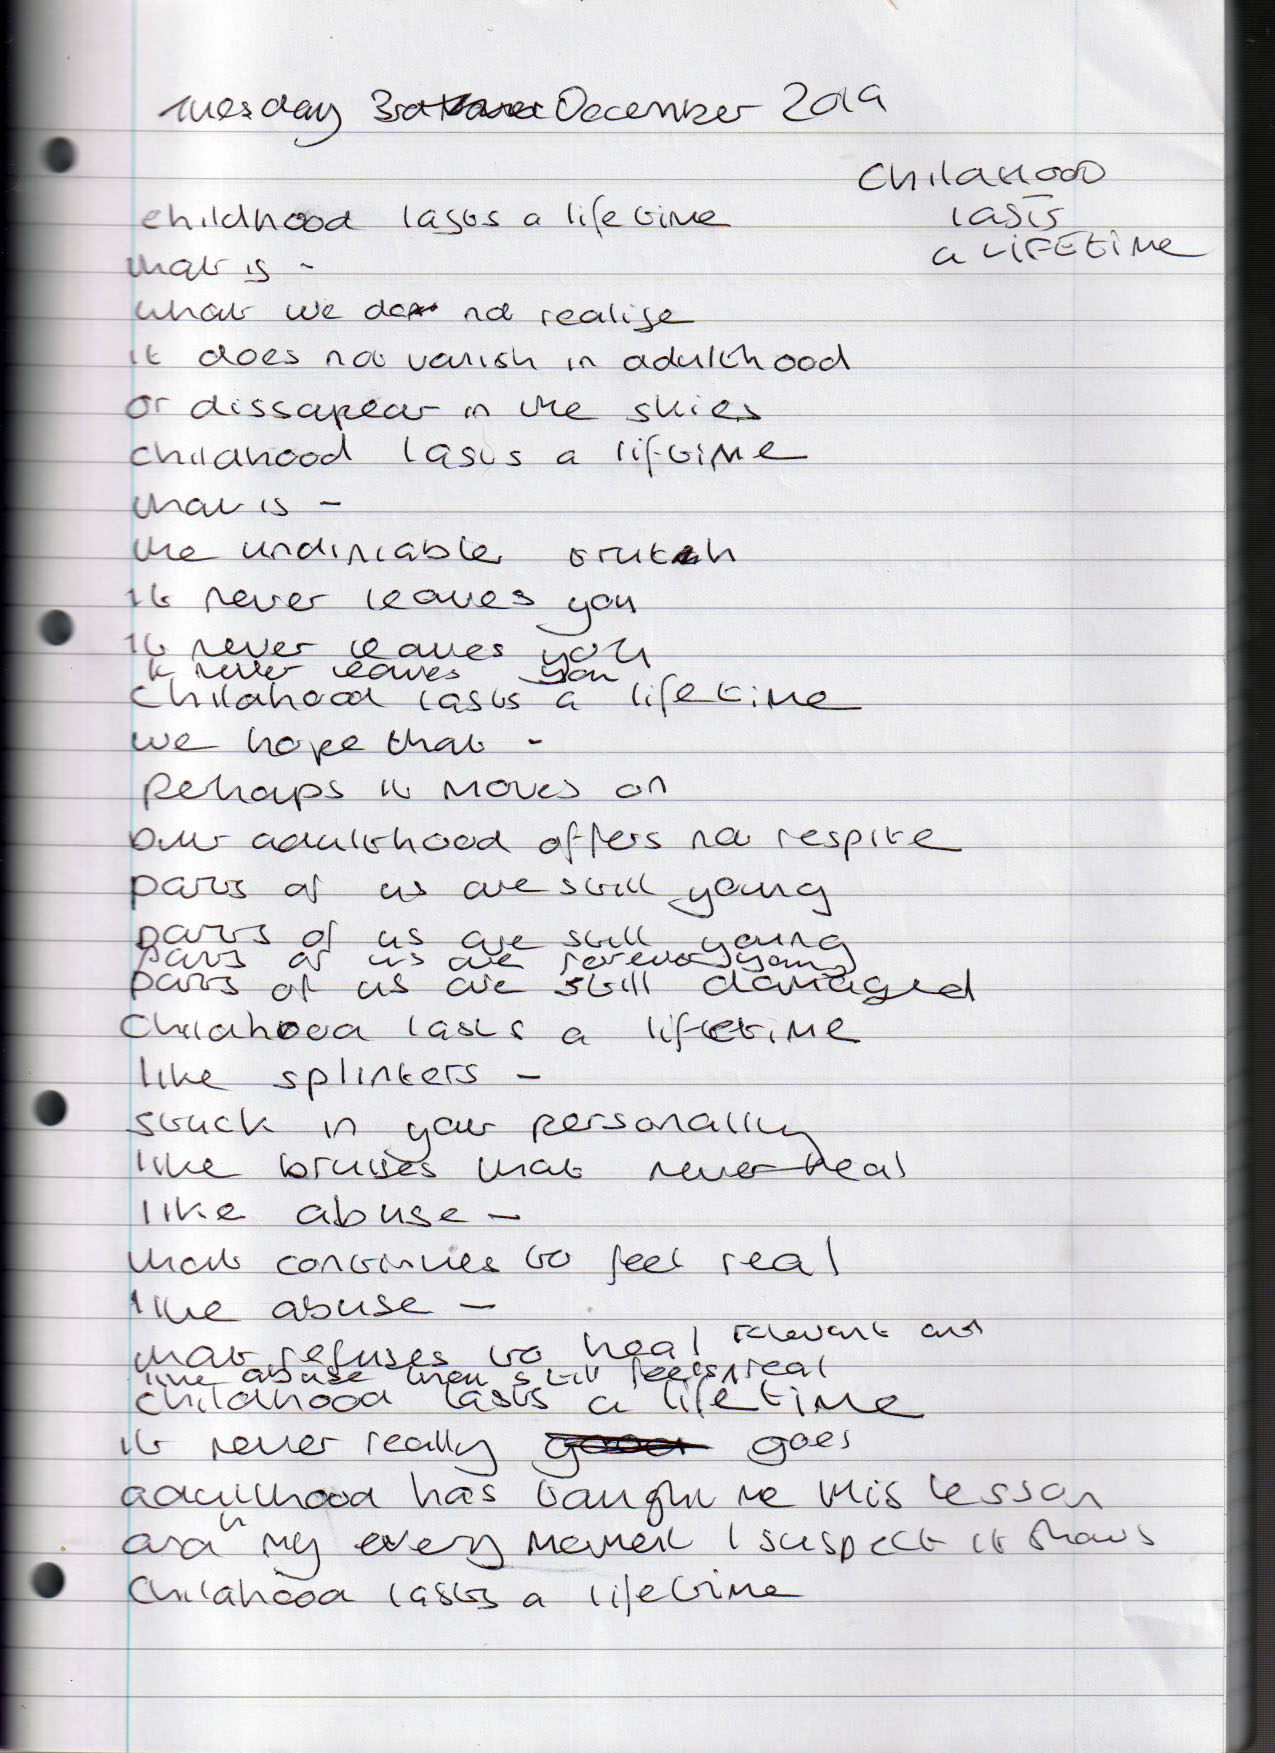 Tuesday 3rd December 2019
Childhood
lasts
a LIFETIME
childhood lasts a lifetime
that is -
what we do not realise
it does not vanish in adulthood
or dissapear in the skies
childhood lasts a lifetime
that is -
the undiniable truth
it never leaves you
it never leaves you
it never leaves you
childhood lasts a lifetime
we hope that -
perhaps it moves on
but adulthood offers no respite
parts of us are still young
parts of us are still young
parts of us are forever young
parts of us are still damaged
Childhood lasts a lifetime
like splinters -
stuck in your personality
like bruises that never heal
like abuse -
that continues to feel real
like abuse -
that refuses to heal
relevant and
like abuse that still feels real
childhood lasts a lifetime
it never really goes
adulthood has taught me this lesson
and in my every moment I suspect it shows
Childhood lasts a lifetime